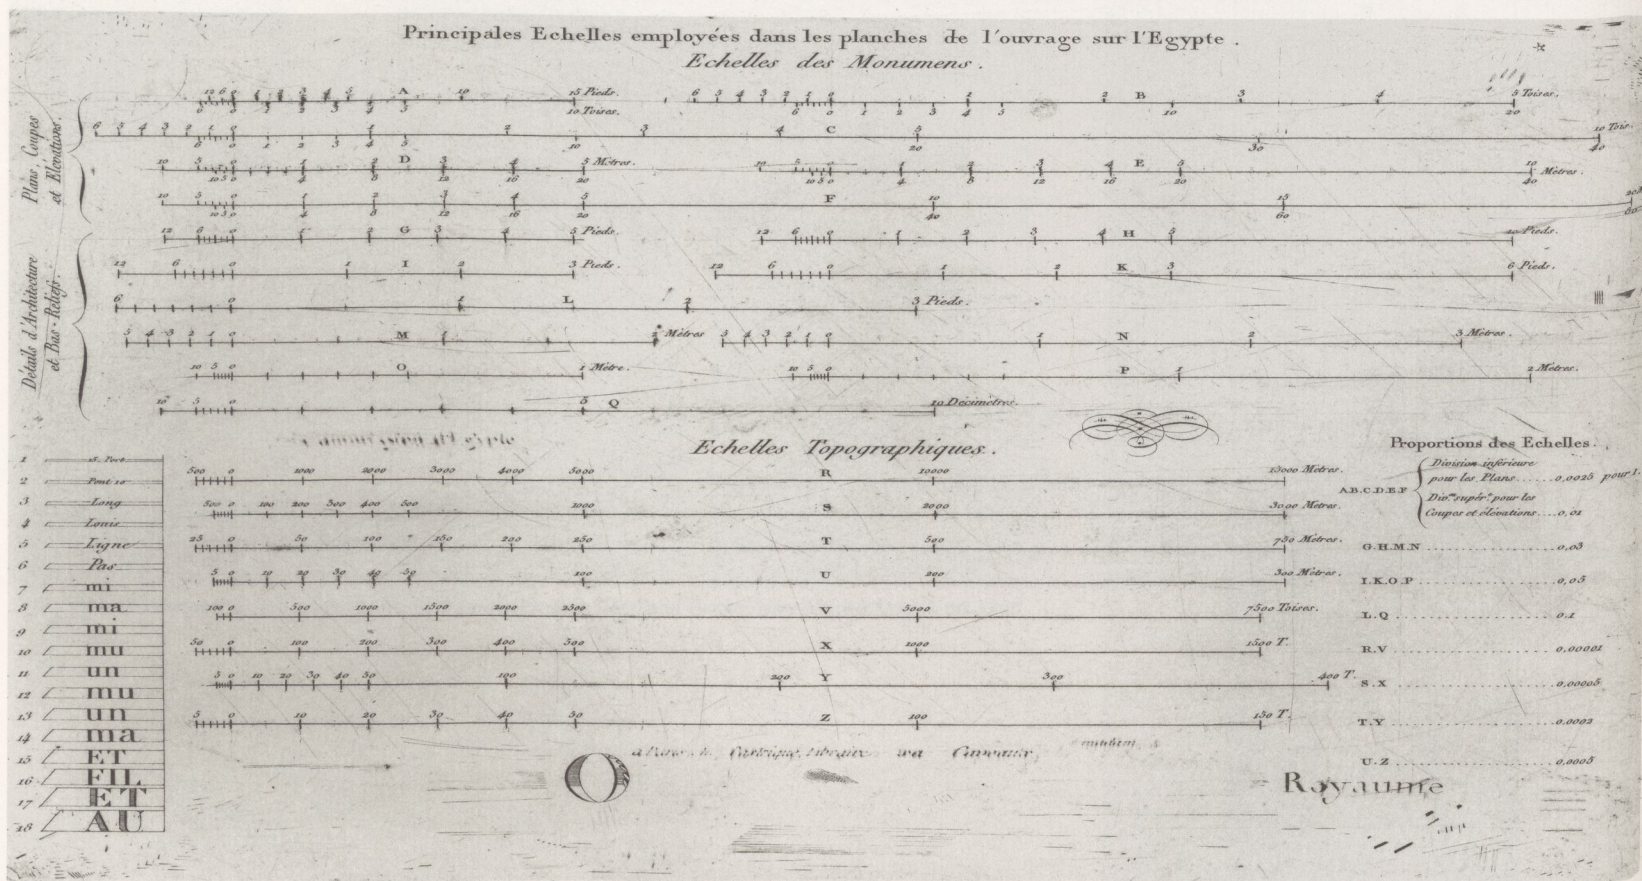 Principales Echelles employées dans les planches de l'ouvrage sur l'Egypte.
Echelles des Monumens.
Plans, Coupes
et Elévations.
12 6 0 5 A 10 15 Pieds.
6 0 3 4 5 10 Toises.
6 5 4 3 2 1 0 1 2 B 3 4 5 Toises.
6 0 1 2 3 4 5 10 20
6 5 4 3 2 1 0 1 2 3 4 C 5 10 Tois.
6 0 1 2 3 4 5 10 20 30 40
10 5 0 1 2 D 3 4 5 Mètres.
10 5 0 4 8 12 16 20
10 5 0 1 2 3 4 E 5 10 Mètres.
10 5 0 4 8 12 16 20 40
10 5 0 1 2 3 4 5 F 10 15 20
10 5 0 4 8 12 16 20 40 60 80
Détails d'Architecture
et Bas-Reliefs.
12 6 0 1 2 G 3 4 5 Pieds.
12 6 0 1 2 3 4 H 5 10 Pieds.
12 6 0 1 I 2 3 Pieds.
12 6 0 1 2 K 3 6 Pieds.
6 0 1 L 2 3 Pieds.
5 4 3 2 1 0 M 1 2 Mètres
5 4 3 2 1 0 1 N 2 3 Mètres.
10 5 0 O 1 Mètre.
10 5 0 P 1 2 Mètres.
10 5 0 5 Q 10 Décimètres.
Echelles Topographiques.
500 0 1000 2000 3000 4000 5000 R 10000 15000 Mètres.
500 0 100 200 300 400 500 1000 S 2000 3000 Mètres.
25 0 50 100 150 200 250 T 500 750 Mètres.
5 0 10 20 30 40 50 100 U 200 300 Mètres.
100 0 500 1000 1500 2000 2500 V 5000 7500 Toises.
50 0 100 200 300 400 500 X 1000 1500 T.
5 0 10 20 30 40 50 100 200 Y 300 400 T.
5 0 10 20 30 40 50 Z 100 150 T.
Proportions des Echelles.
A.B.C.D.E.F
Division inférieure
pour les Plans ..... 0,0025 pour 1.
Div.on supér.re pour les
Coupes et élévations .... 0,01
G.H.M.N ..... 0,03
I.K.O.P ..... 0,05
L.Q ..... 0,1
R.V ..... 0,00001
S.X ..... 0,00005
T.Y ..... 0,0002
U.Z ..... 0,0005
1
2 Pont 10
3 Long
4 Louis
5 Ligne
6 Pas
7 mi
8 ma
9 mi
10 mu
11 un
12 mu
13 un
14 ma
15 ET
16 FIL
17 ET
18 AU
O
Royaume